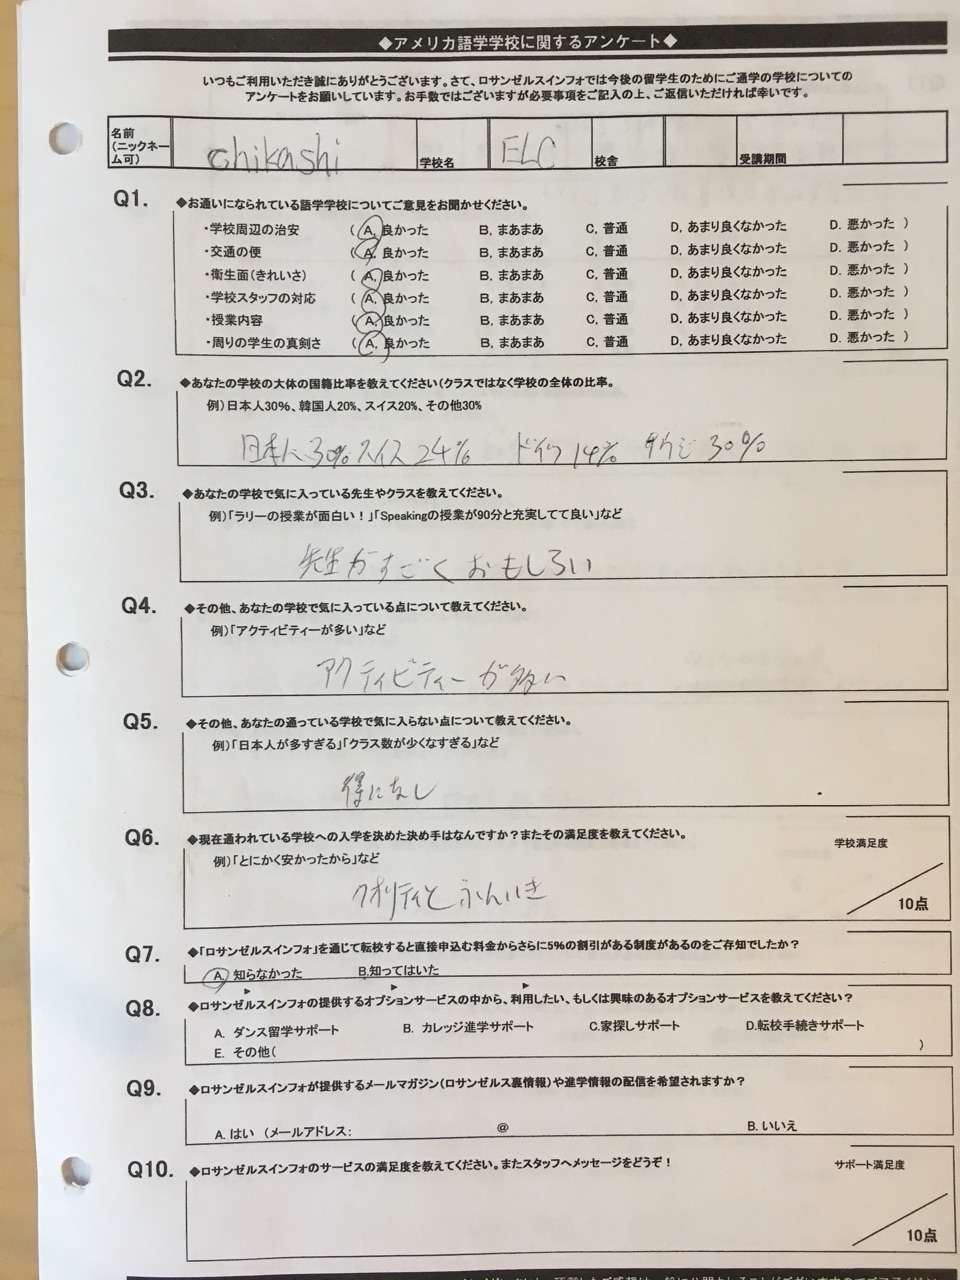 ◆アメリカ語学学校に関するアンケート◆
いつもご利用いただき誠にありがとうございます。さて、ロサンゼルスインフォでは今後の留学生のためにご通学の学校についての
アンケートをお願いしています。お手数ではございますが必要事項をご記入の上、ご返信いただければ幸いです。
名前
(ニックネーム可) chikashi 学校名 ELC 校舎 受講期間
Q1. ◆お通いになられている語学学校についてご意見をお聞かせください。
・学校周辺の治安 ( A, 良かった B, まあまあ C, 普通 D, あまり良くなかった D. 悪かった )
・交通の便 ( A, 良かった B, まあまあ C, 普通 D, あまり良くなかった D. 悪かった )
・衛生面(きれいさ) ( A, 良かった B, まあまあ C, 普通 D, あまり良くなかった D. 悪かった )
・学校スタッフの対応 ( A, 良かった B, まあまあ C, 普通 D, あまり良くなかった D. 悪かった )
・授業内容 ( A, 良かった B, まあまあ C, 普通 D, あまり良くなかった D. 悪かった )
・周りの学生の真剣さ ( A, 良かった B, まあまあ C, 普通 D, あまり良くなかった D. 悪かった )
Q2. ◆あなたの学校の大体の国籍比率を教えてください(クラスではなく学校の全体の比率。
例)日本人30%、韓国人20%、スイス20%、その他30%
日本人30% スイス 24% ドイツ 14% サウジ 30%
Q3. ◆あなたの学校で気に入っている先生やクラスを教えてください。
例)「ラリーの授業が面白い!」「Speakingの授業が90分と充実してて良い」など
先生がすごくおもしろい
Q4. ◆その他、あなたの学校で気に入っている点について教えてください。
例)「アクティビティーが多い」など
アクティビティーが多い
Q5. ◆その他、あなたの通っている学校で気に入らない点について教えてください。
例)「日本人が多すぎる」「クラス数が少くなすぎる」など
得になし
Q6. ◆現在通われている学校への入学を決めた決め手はなんですか?またその満足度を教えてください。
例)「とにかく安かったから」など 学校満足度
クオリティとふんいき
10点
Q7. ◆「ロサンゼルスインフォ」を通じて転校すると直接申込む料金からさらに5%の割引がある制度があるのをご存知でしたか?
A. 知らなかった B.知ってはいた
Q8. ◆ロサンゼルスインフォの提供するオプションサービスの中から、利用したい、もしくは興味のあるオプションサービスを教えてください?
A. ダンス留学サポート B. カレッジ進学サポート C.家探しサポート D.転校手続きサポート
E. その他( )
Q9. ◆ロサンゼルスインフォが提供するメールマガジン(ロサンゼルス裏情報)や進学情報の配信を希望されますか?
A. はい (メールアドレス: @ B. いいえ
Q10. ◆ロサンゼルスインフォのサービスの満足度を教えてください。またスタッフへメッセージをどうぞ! サポート満足度
10点